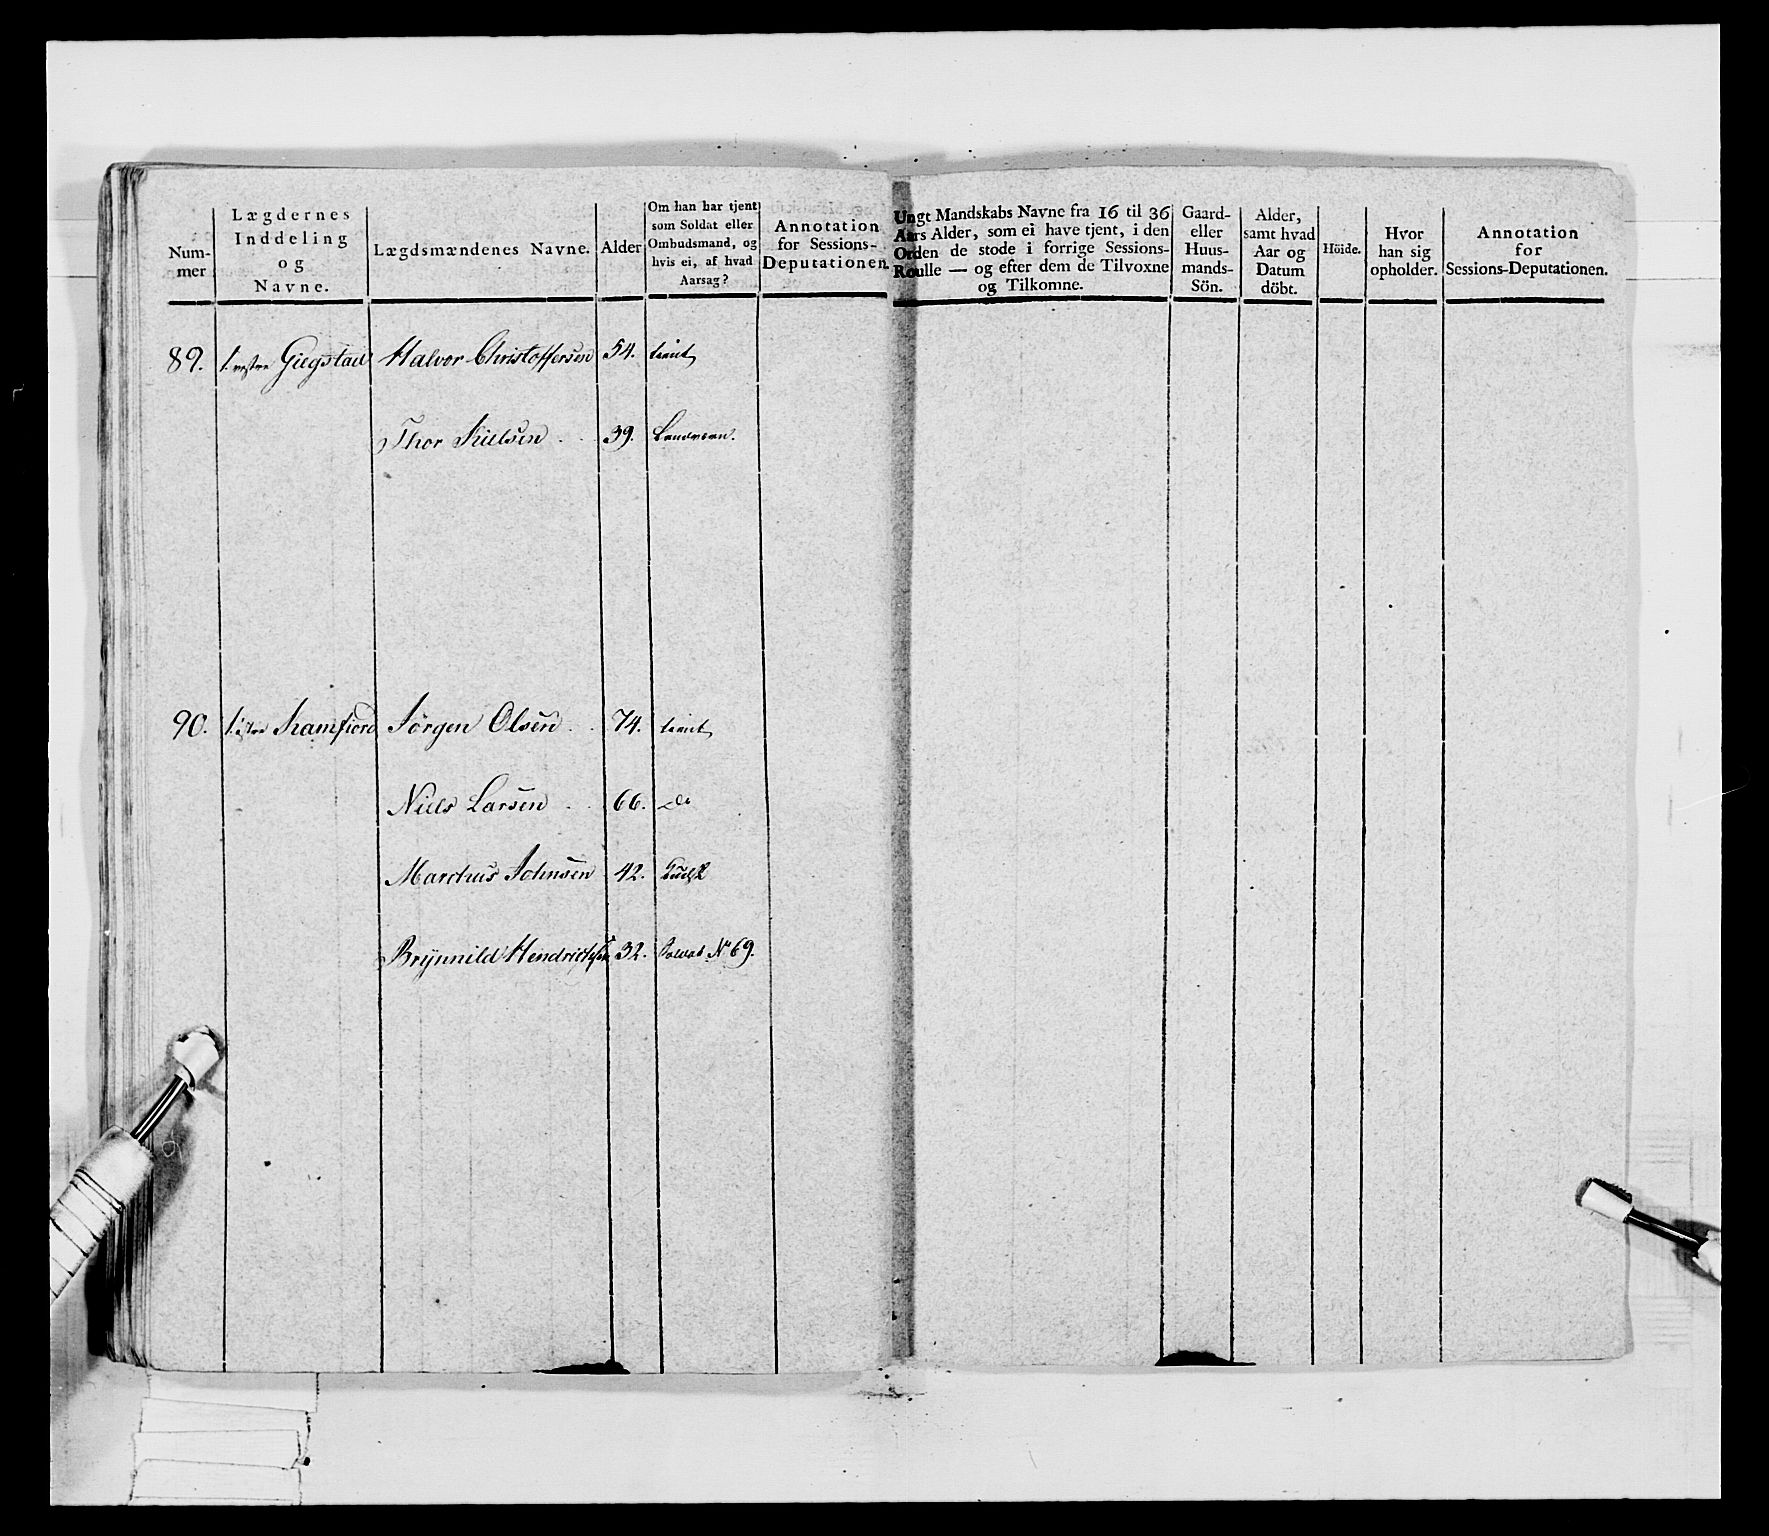 Num-
mer
Lægdernes
Inddeling
og
Navne.
Lægdsmændenes Navne.
Alder
Om han har tjent
som Soldat eller
Ombudsmand, og
hvis ei, af hvad
Aarsag?
Annotation
for Sessions-
Deputationen.
Ungt Mandskabs Navne fra 16 til 36
Aars Alder, som ei have tjent, i den
Orden de stode i forrige Sessions-
Roulle — og efter dem de Tilvoxne
og Tilkomne.
Gaard-
eller
Huus-
mands-
Sön.
Alder,
samt hvad
Aar og
Datum
döbt.
Höide.
Hvor
han sig
opholder.
Annotation
for
Sessions-Deputationen.
89. 1. vestre Giegstad Halvor Christoffersen 54. tient
Thor Nielsen 39. Landvern.
90. 1. istre Kamfiord Jörgen Olsen 74. tient
Niels Larsen 66. do
Marchus Johnsen 42.
Brynnild Hendrichsen 32. No 69.